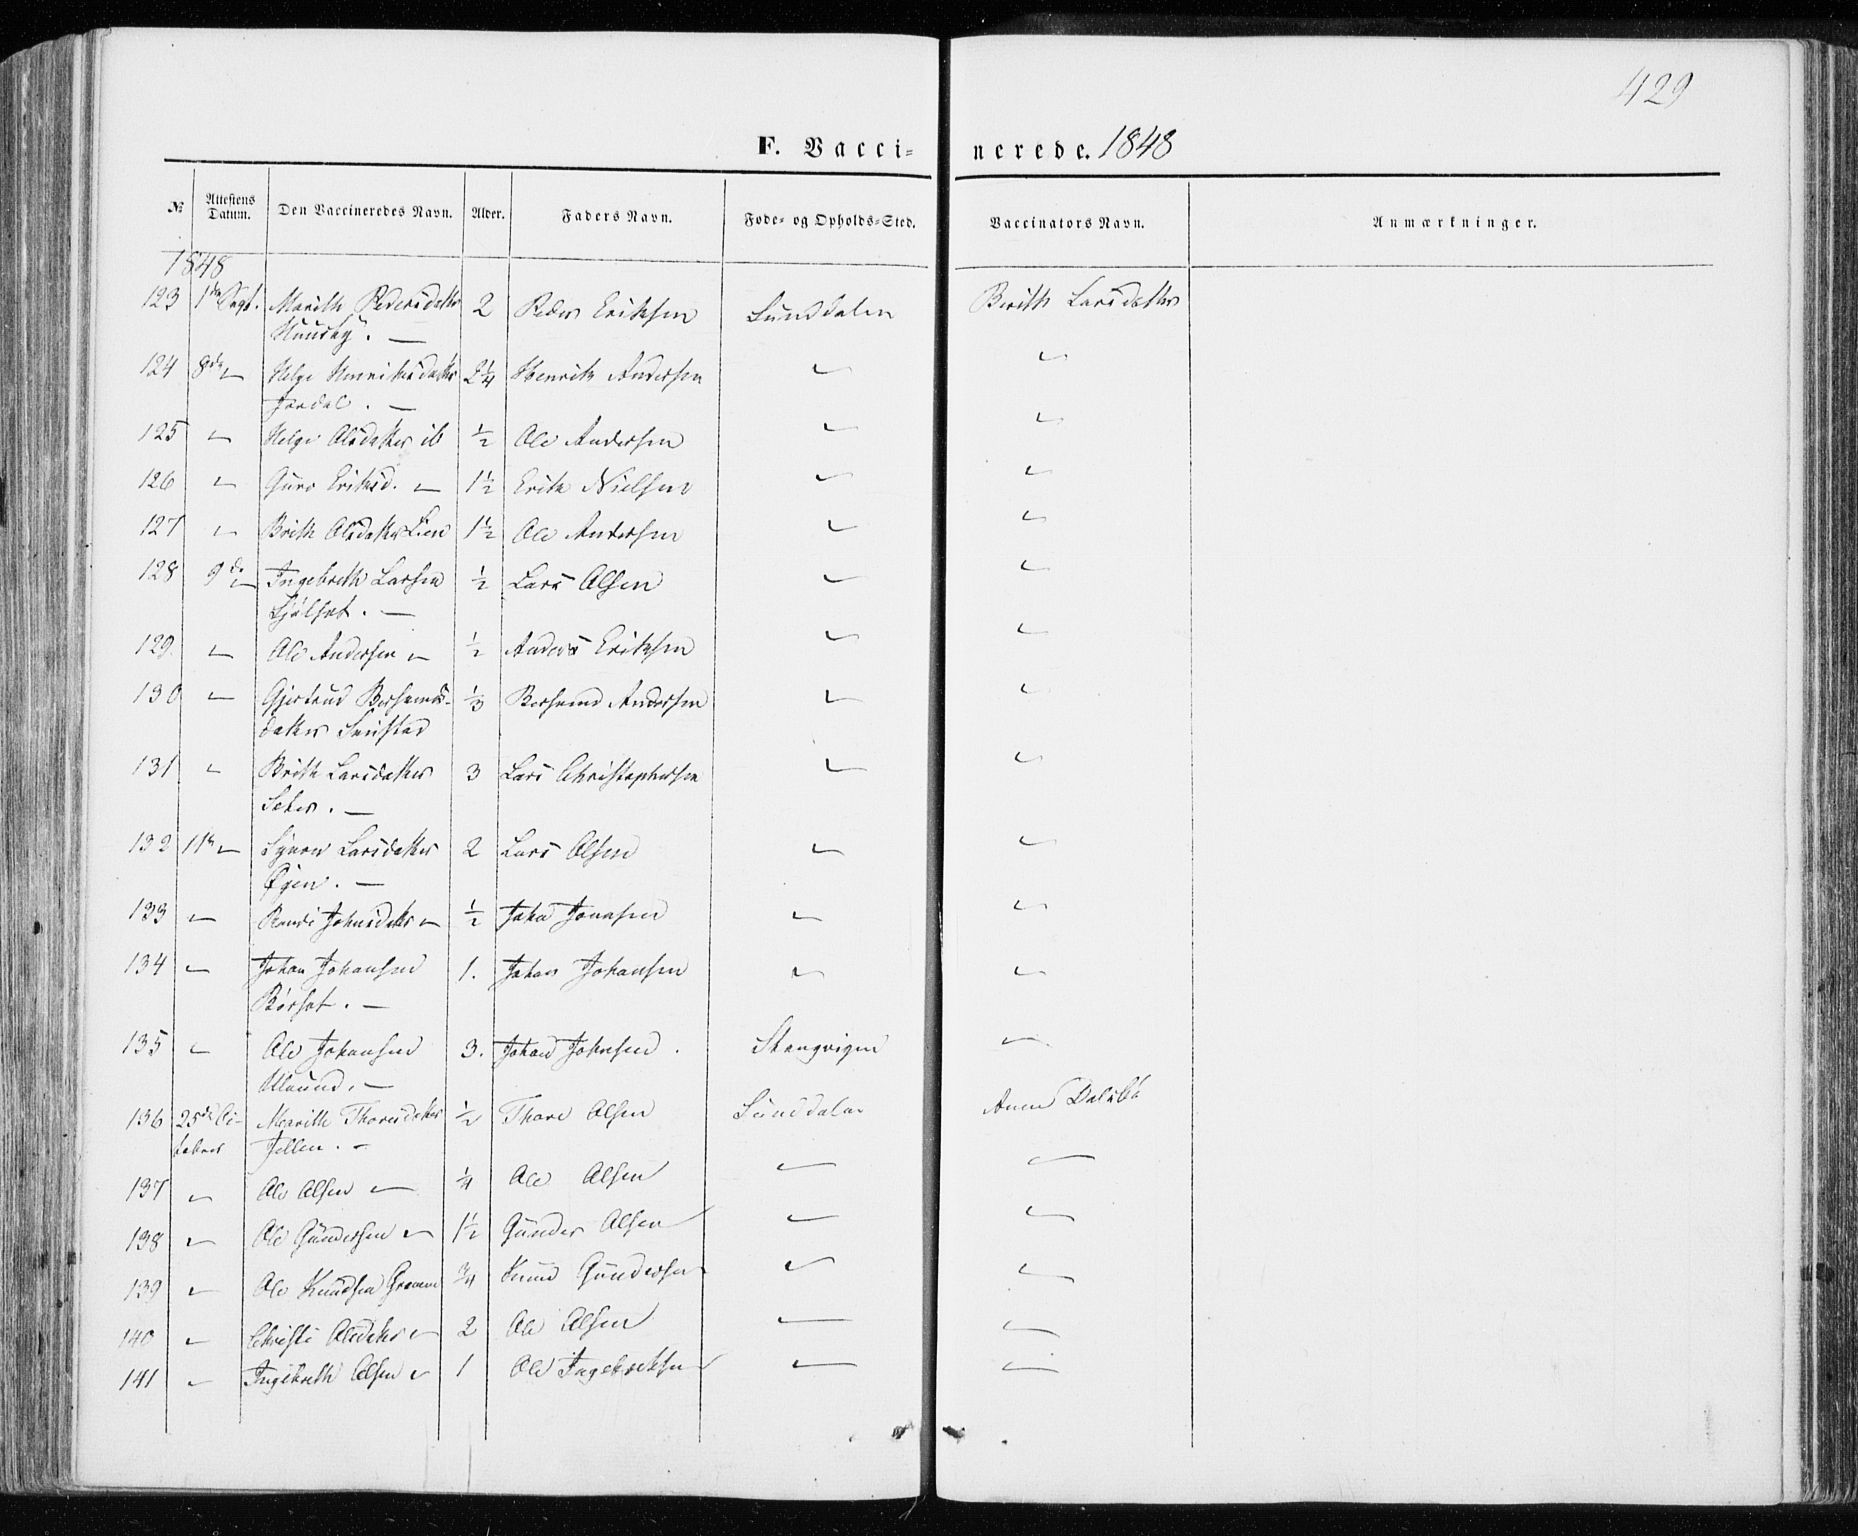 429
F. Vacci= nerede. 1848
№ Attestens Datum. Den Vaccineredes Navn. Alder. Faders Navn. Føde= og Opholds=Sted. Vaccinators Navn. Anmærkninger.
1848
123 1ste Sept. Marith Pedersdatter 2 Peder Eriksen Sunddalen Berith Larsdatter
124 8de " Helge Henriksdatter 2¼ Henrik Andersen " "
Jordal. —
125 " Helge Olsdatter ib ½ Ole Andersen " "
126 " Guro Eriksd. " 1½ Erik Nielsen " "
127 " Brith Olsdatter Lien 1½ Ole Andersen " "
128 9de " Ingebreth Larsen ½ Lars Olsen " "
129. " Ole Andersen " ½ Anders Eriksen " "
130 " Gjertrud Bersvends- ⅓ Bersvend Andersen " "
datter
131 " Brith Larsdatter 3 Lars Christophersen " "
Seter. —
132 11te " Synnev Larsdatter 2 Lars Olsen " "
Øyen. —
133 " Randi Johnsdatter " ½ John Jonasen " "
134 " Johan Johansen 1. Johan Johansen " "
Børset. —
135 " Ole Johansen 3. Johan Johnsen. Stangvigen "
136 25de Oc- Marith Thoresdatter ½ Thore Olsen Sunddalen Anne
tober
137 " Ole Olsen " ¼ Ole Olsen " "
138 " Ole Gundersen " 1½ Gunder Olsen " "
139 " Ole Knudsen ¾ Knud Gundersen " "
140 " Christi Olsdatter " 2 Ole Olsen " "
141 " Ingebreth Olsen " 1 Ole Ingebrethsen " "